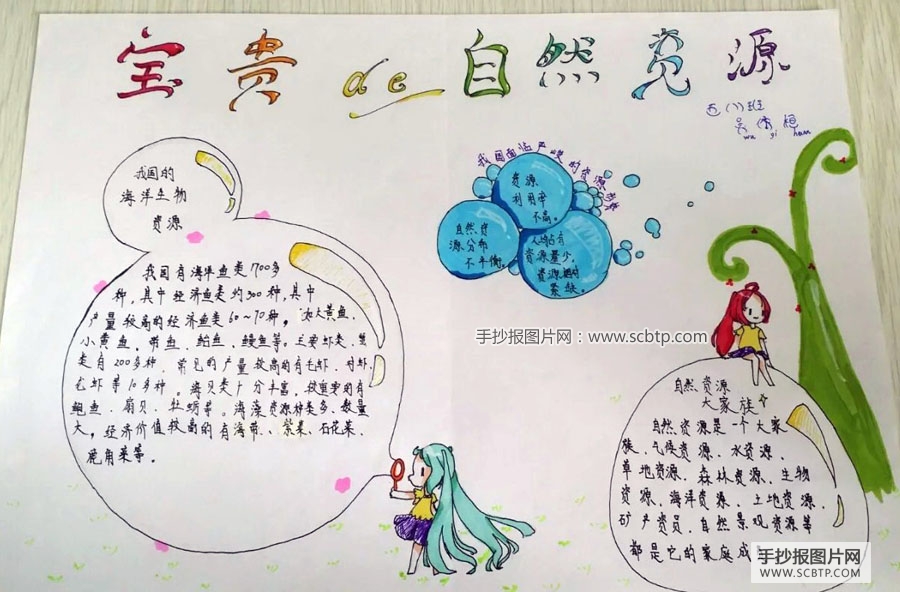 宝贵de自然资源
五(1)班
wu yi han
我国的
海洋生物
资源
我国有海洋鱼类1700多
种，其中经济鱼类约300种，其中
产量较高的经济鱼类60~70种，如大黄鱼、
小黄鱼、带鱼、鲐鱼、鳗鱼等。主要虾、蟹
类有200多种，常见的产量较高的有毛虾、对虾、
毛虾等10多种。海贝类十分丰富，较重要的有
鲍鱼、扇贝、牡蛎等。海藻资源种类多，数量
大，经济价值较高的有海带、紫菜、石花菜、
鹿角菜等。
我国面临严峻的资源
资源
利用率
不高。
自然资
源分布
不平衡。
人均占有
资源量少，
资源
紧缺。
手抄报图片网：www.scbtp.com
自然资源
大家族
自然资源是一个大家
族、气候资源、水资源、
草地资源、森林资源、生物
资源、海洋资源、土地资源、
矿产资员、自然景观资源等
都是它的家庭成
手抄报图片网
WWW.SCBTP.COM